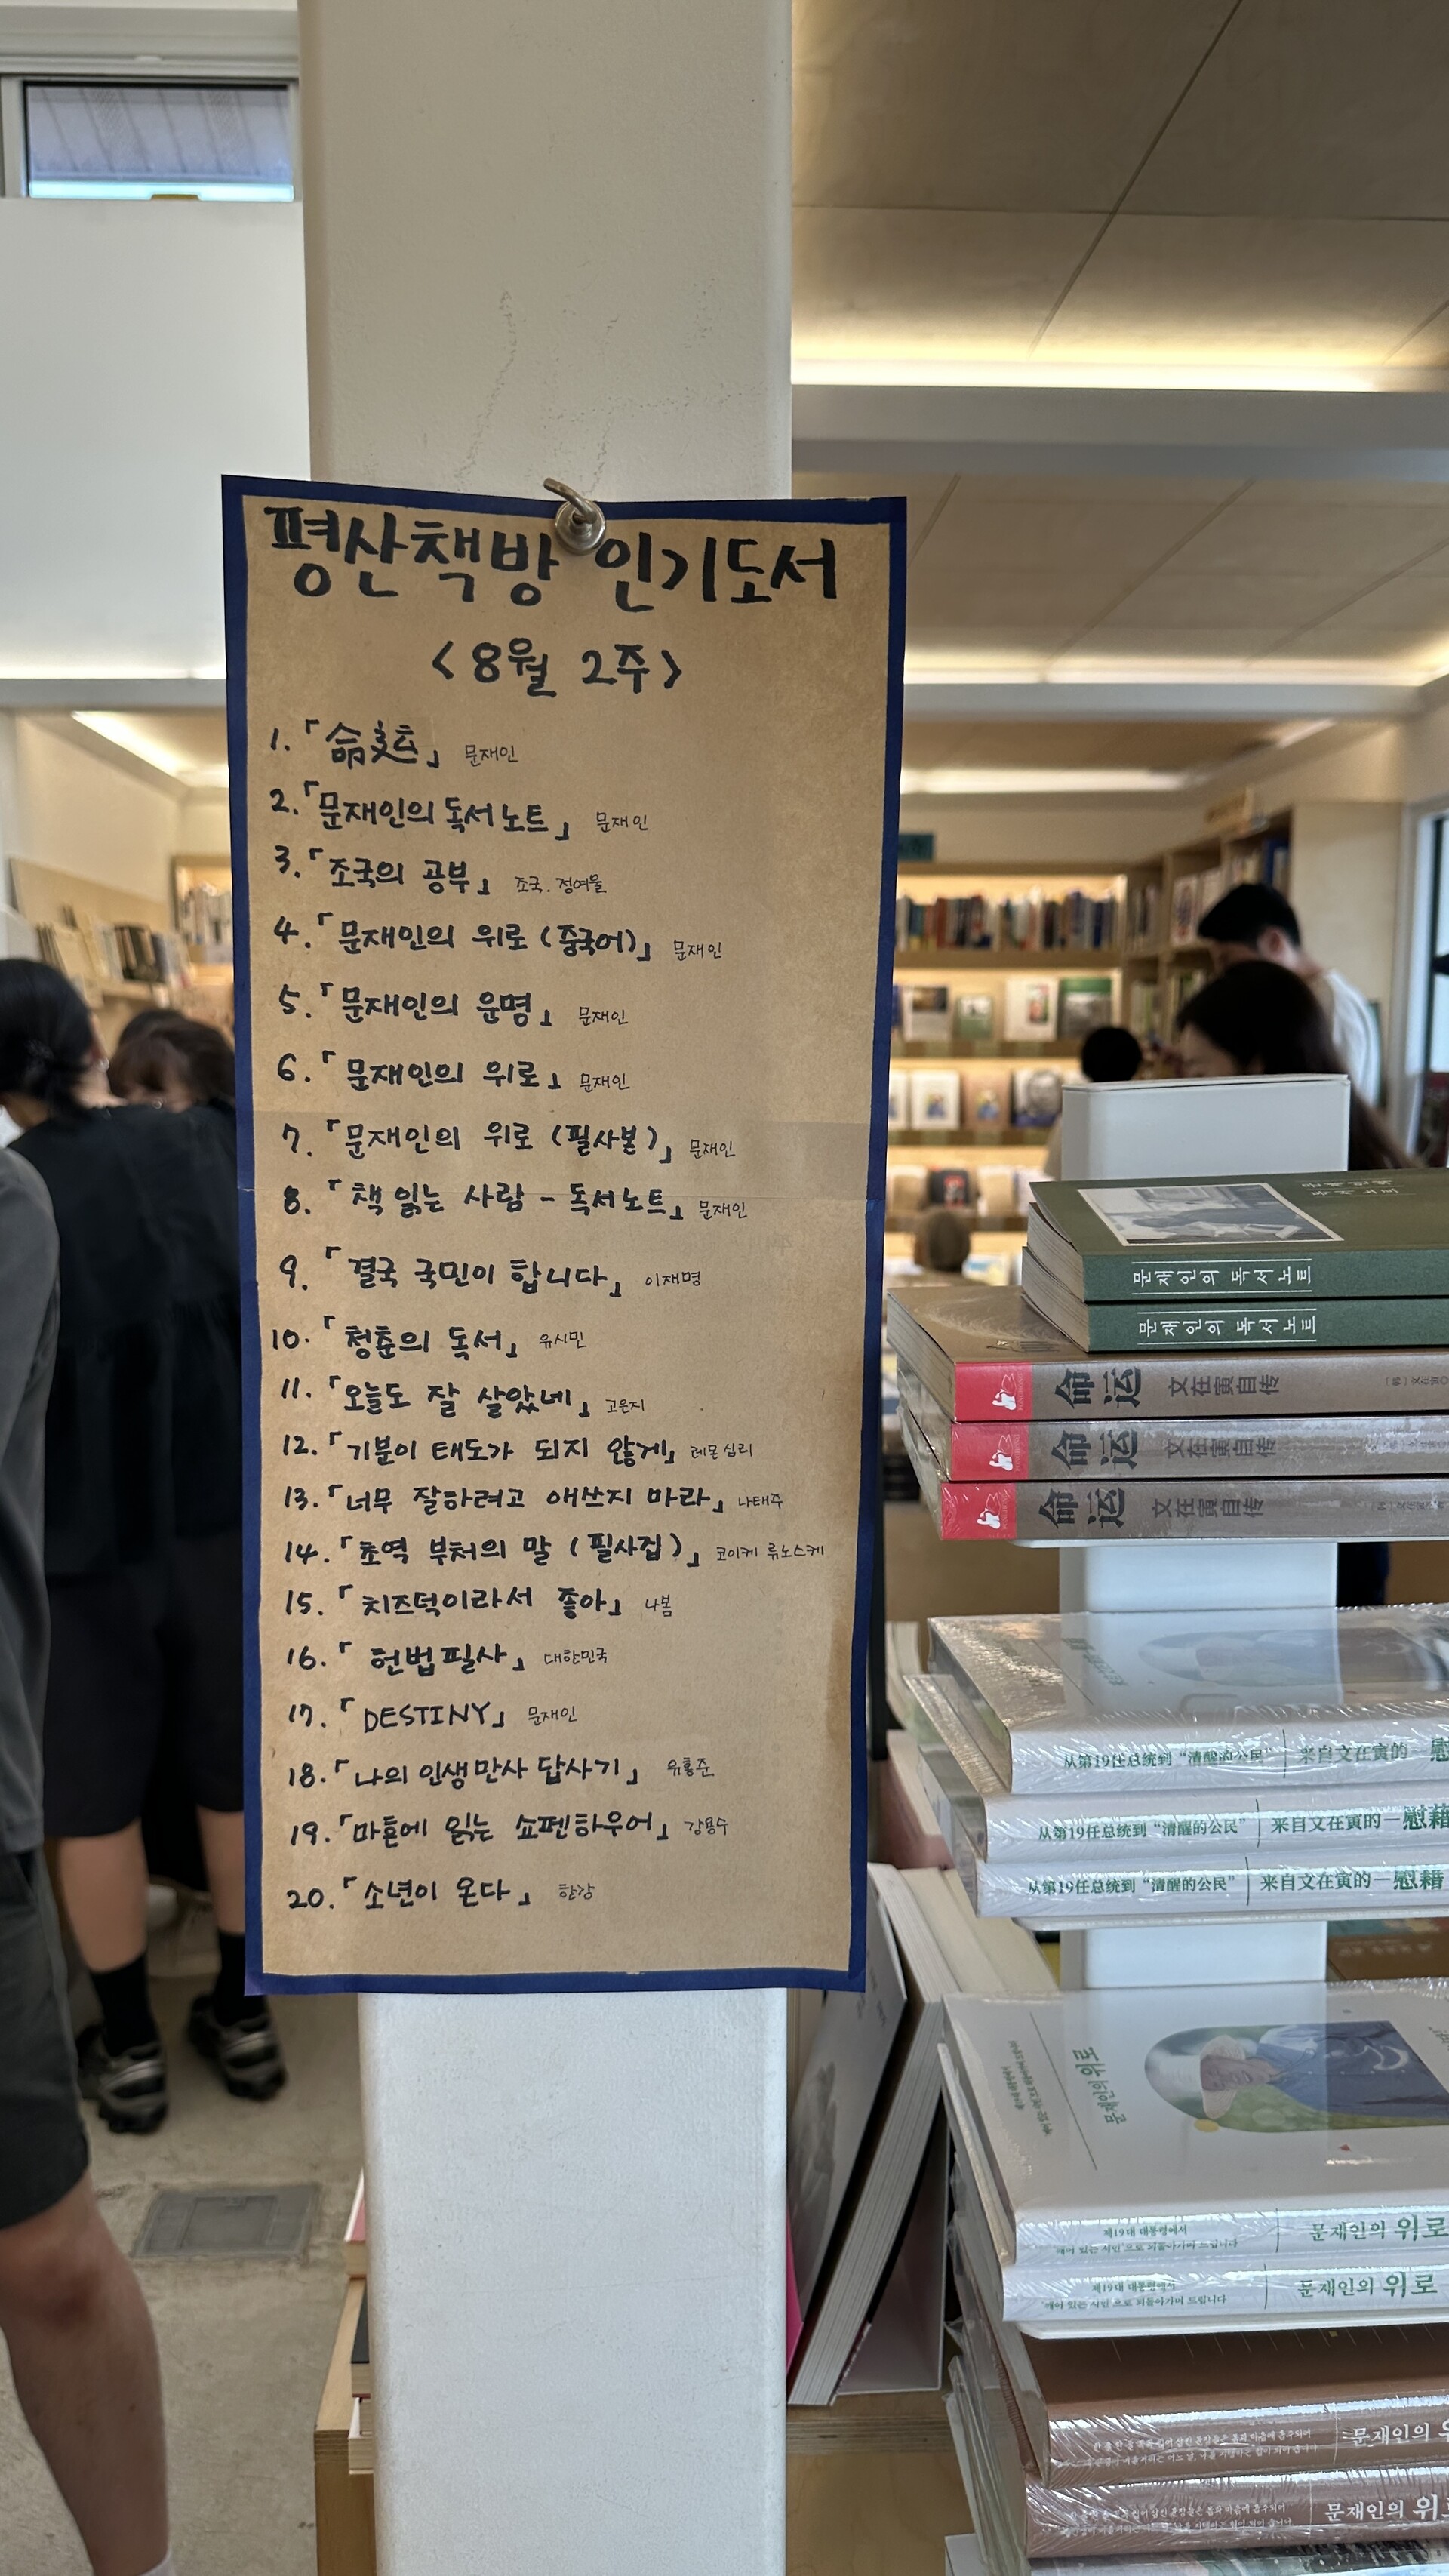 평산책방 인기도서
<8월 2주>
1.「命运」 문재인
2.「문재인의 독서노트」 문재인
3.「조국의 공부」 조국. 정여울
4.「문재인의 위로(중국어)」 문재인
5.「문재인의 운명」 문재인
6.「문재인의 위로」 문재인
7.「문재인의 위로(필사본)」 문재인
8.「책 읽는 사람 - 독서노트」 문재인
9.「결국 국민이 합니다」 이재명
10.「청춘의 독서」 유시민
11.「오늘도 잘 살았네」 고은지
12.「기분이 태도가 되지 않게」 레몬심리
13.「너무 잘하려고 애쓰지 마라」 나태주
14.「초역 부처의 말(필사집)」 코이케 류노스케
15.「치즈덕이라서 좋아」 나봄
16.「헌법필사」 대한민국
17.「DESTINY」 문재인
18.「나의 인생만사 답사기」 유홍준
19.「마흔에 읽는 쇼펜하우어」 강용수
20.「소년이 온다」 한강
문재인의 독서노트
문재인의 독서노트
命运 文在寅自传
命运 文在寅自传
命运 文在寅自传
从第19任总统到“清醒的公民” 来自文在寅的一慰
从第19任总统到“清醒的公民” 来自文在寅的一慰藉
从第19任总统到“清醒的公民” 来自文在寅的一慰藉
문재인의 위로
제19대 대통령에서 '깨어 있는 시민'으로 되돌아가며 드립니다 문재인의 위로
제19대 대통령에서 '깨어 있는 시민'으로 되돌아가며 드립니다 문재인의 위로
문재인의
문재인의 위